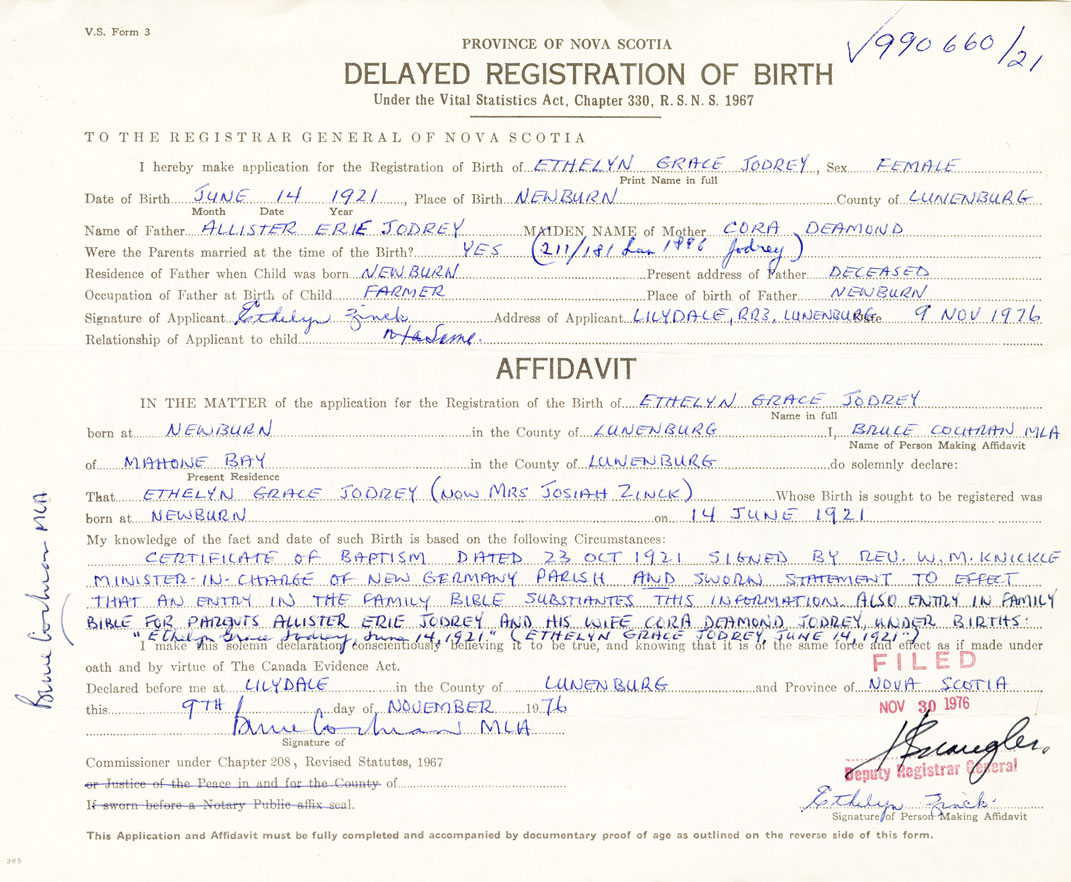 V.S. Form 3
√990660/21
PROVINCE OF NOVA SCOTIA
DELAYED REGISTRATION OF BIRTH
Under the Vital Statistics Act, Chapter 330, R. S. N. S. 1967
TO THE REGISTRAR GENERAL OF NOVA SCOTIA
I hereby make application for the Registration of Birth of ETHELYN GRACE JODREY, Sex FEMALE
Print Name in full
Date of Birth JUNE 14 1921, Place of Birth NEWBURN County of LUNENBURG
Month Date Year
Name of Father ALLISTER ERIE JODREY MAIDEN NAME of Mother CORA DEAMOND
Were the Parents married at the time of the Birth? YES (211/181 Lun 1896 Jodrey)
Residence of Father when Child was born NEWBURN Present address of Father DECEASED
Occupation of Father at Birth of Child FARMER Place of birth of Father NEWBURN
Signature of Applicant Ethelyn Zinck Address of Applicant LILYDALE, RR3, LUNENBURG Date 9 NOV 1976
Relationship of Applicant to child Same.
AFFIDAVIT
IN THE MATTER of the application for the Registration of the Birth of ETHELYN GRACE JODREY
Name in full
born at NEWBURN in the County of LUNENBURG I, BRUCE COCHRAN MLA
Name of Person Making Affidavit
of MAHONE BAY in the County of LUNENBURG do solemnly declare:
Present Residence
That ETHELYN GRACE JODREY (NOW MRS JOSIAH ZINCK) Whose Birth is sought to be registered was
born at NEWBURN on 14 JUNE 1921
My knowledge of the fact and date of such Birth is based on the following Circumstances:
CERTIFICATE OF BAPTISM DATED 23 OCT 1921 SIGNED BY REV. W. M. KNICKLE
MINISTER-IN-CHARGE OF NEW GERMANY PARISH AND SWORN STATEMENT TO EFFECT
THAT AN ENTRY IN THE FAMILY BIBLE SUBSTIANTES THIS INFORMATION. ALSO ENTRY IN FAMILY
BIBLE FOR PARENTS ALLISTER ERIE JODREY AND HIS WIFE CORA DEAMOND JODREY, UNDER BIRTHS:
"Ethelyn Grace Jodrey, June 14, 1921." (ETHELYN GRACE JODREY, JUNE 14, 1921")
I make this solemn declaration conscientiously believing it to be true, and knowing that it is of the same force and effect as if made under
oath and by virtue of The Canada Evidence Act.
FILED
Declared before me at LILYDALE in the County of LUNENBURG and Province of NOVA SCOTIA
this 9TH day of NOVEMBER 1976
NOV 30 1976
Bruce Cochran MLA
Signature of
Commissioner under Chapter 208, Revised Statutes, 1967
Deputy Registrar General
or Justice of the Peace in and for the County of
If sworn before a Notary Public affix seal.
Ethelyn Zinck.
Signature of Person Making Affidavit
This Application and Affidavit must be fully completed and accompanied by documentary proof of age as outlined on the reverse side of this form.
305
Bruce Cochran MLA